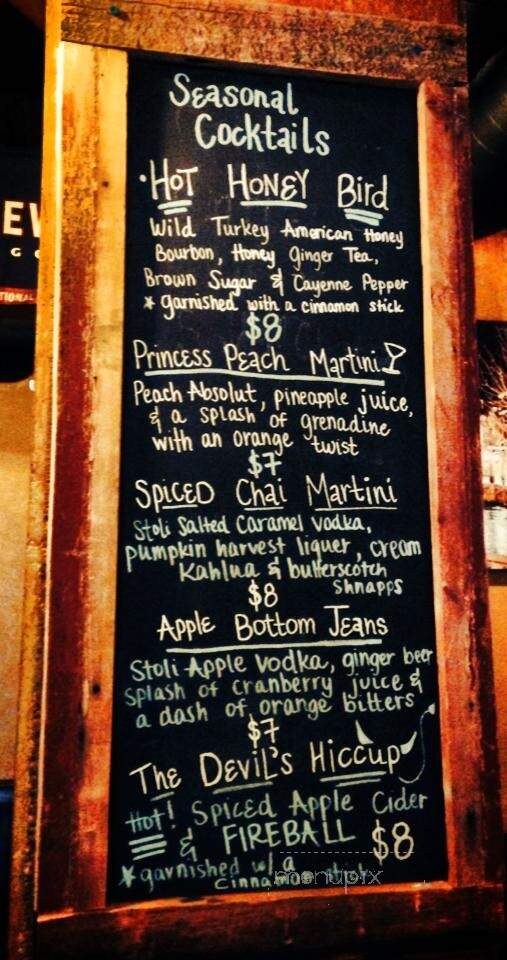 Seasonal
Cocktails
· HOT HONEY Bird
Wild Turkey American Honey
Bourbon, Honey Ginger Tea,
Brown Sugar & Cayenne Pepper
* garnished with a cinnamon stick
$8
Princess Peach Martini
Peach Absolut, pineapple juice,
& a splash of grenadine
with an orange twist
$7
SPICED Chai Martini
Stoli Salted Caramel vodka,
pumpkin harvest liquer, cream
Kahlua & butterscotch
Shnapps
$8
Apple Bottom Jeans
Stoli Apple vodka, ginger beer
splash of cranberry juice &
a dash of orange bitters
$7
The Devil's Hiccup
Hot! Spiced Apple Cider
& FIREBALL $8
* garnished w/ a
cinnamon stick
menupix